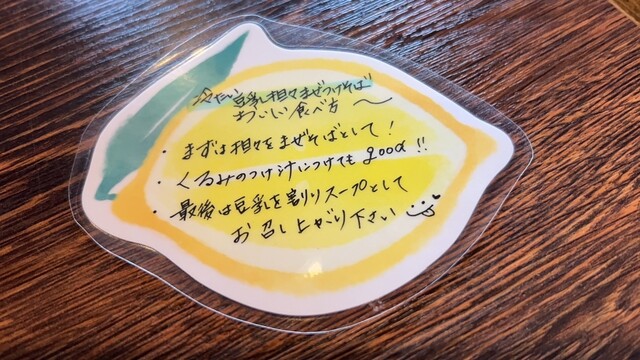 冷たい豆乳担々まぜつけそば
おいしい食べ方〜
・まずは担々をまぜそばとして!
・くるみのつけ汁につけても good!!
・最後は豆乳を割りスープとして
お召し上がり下さい